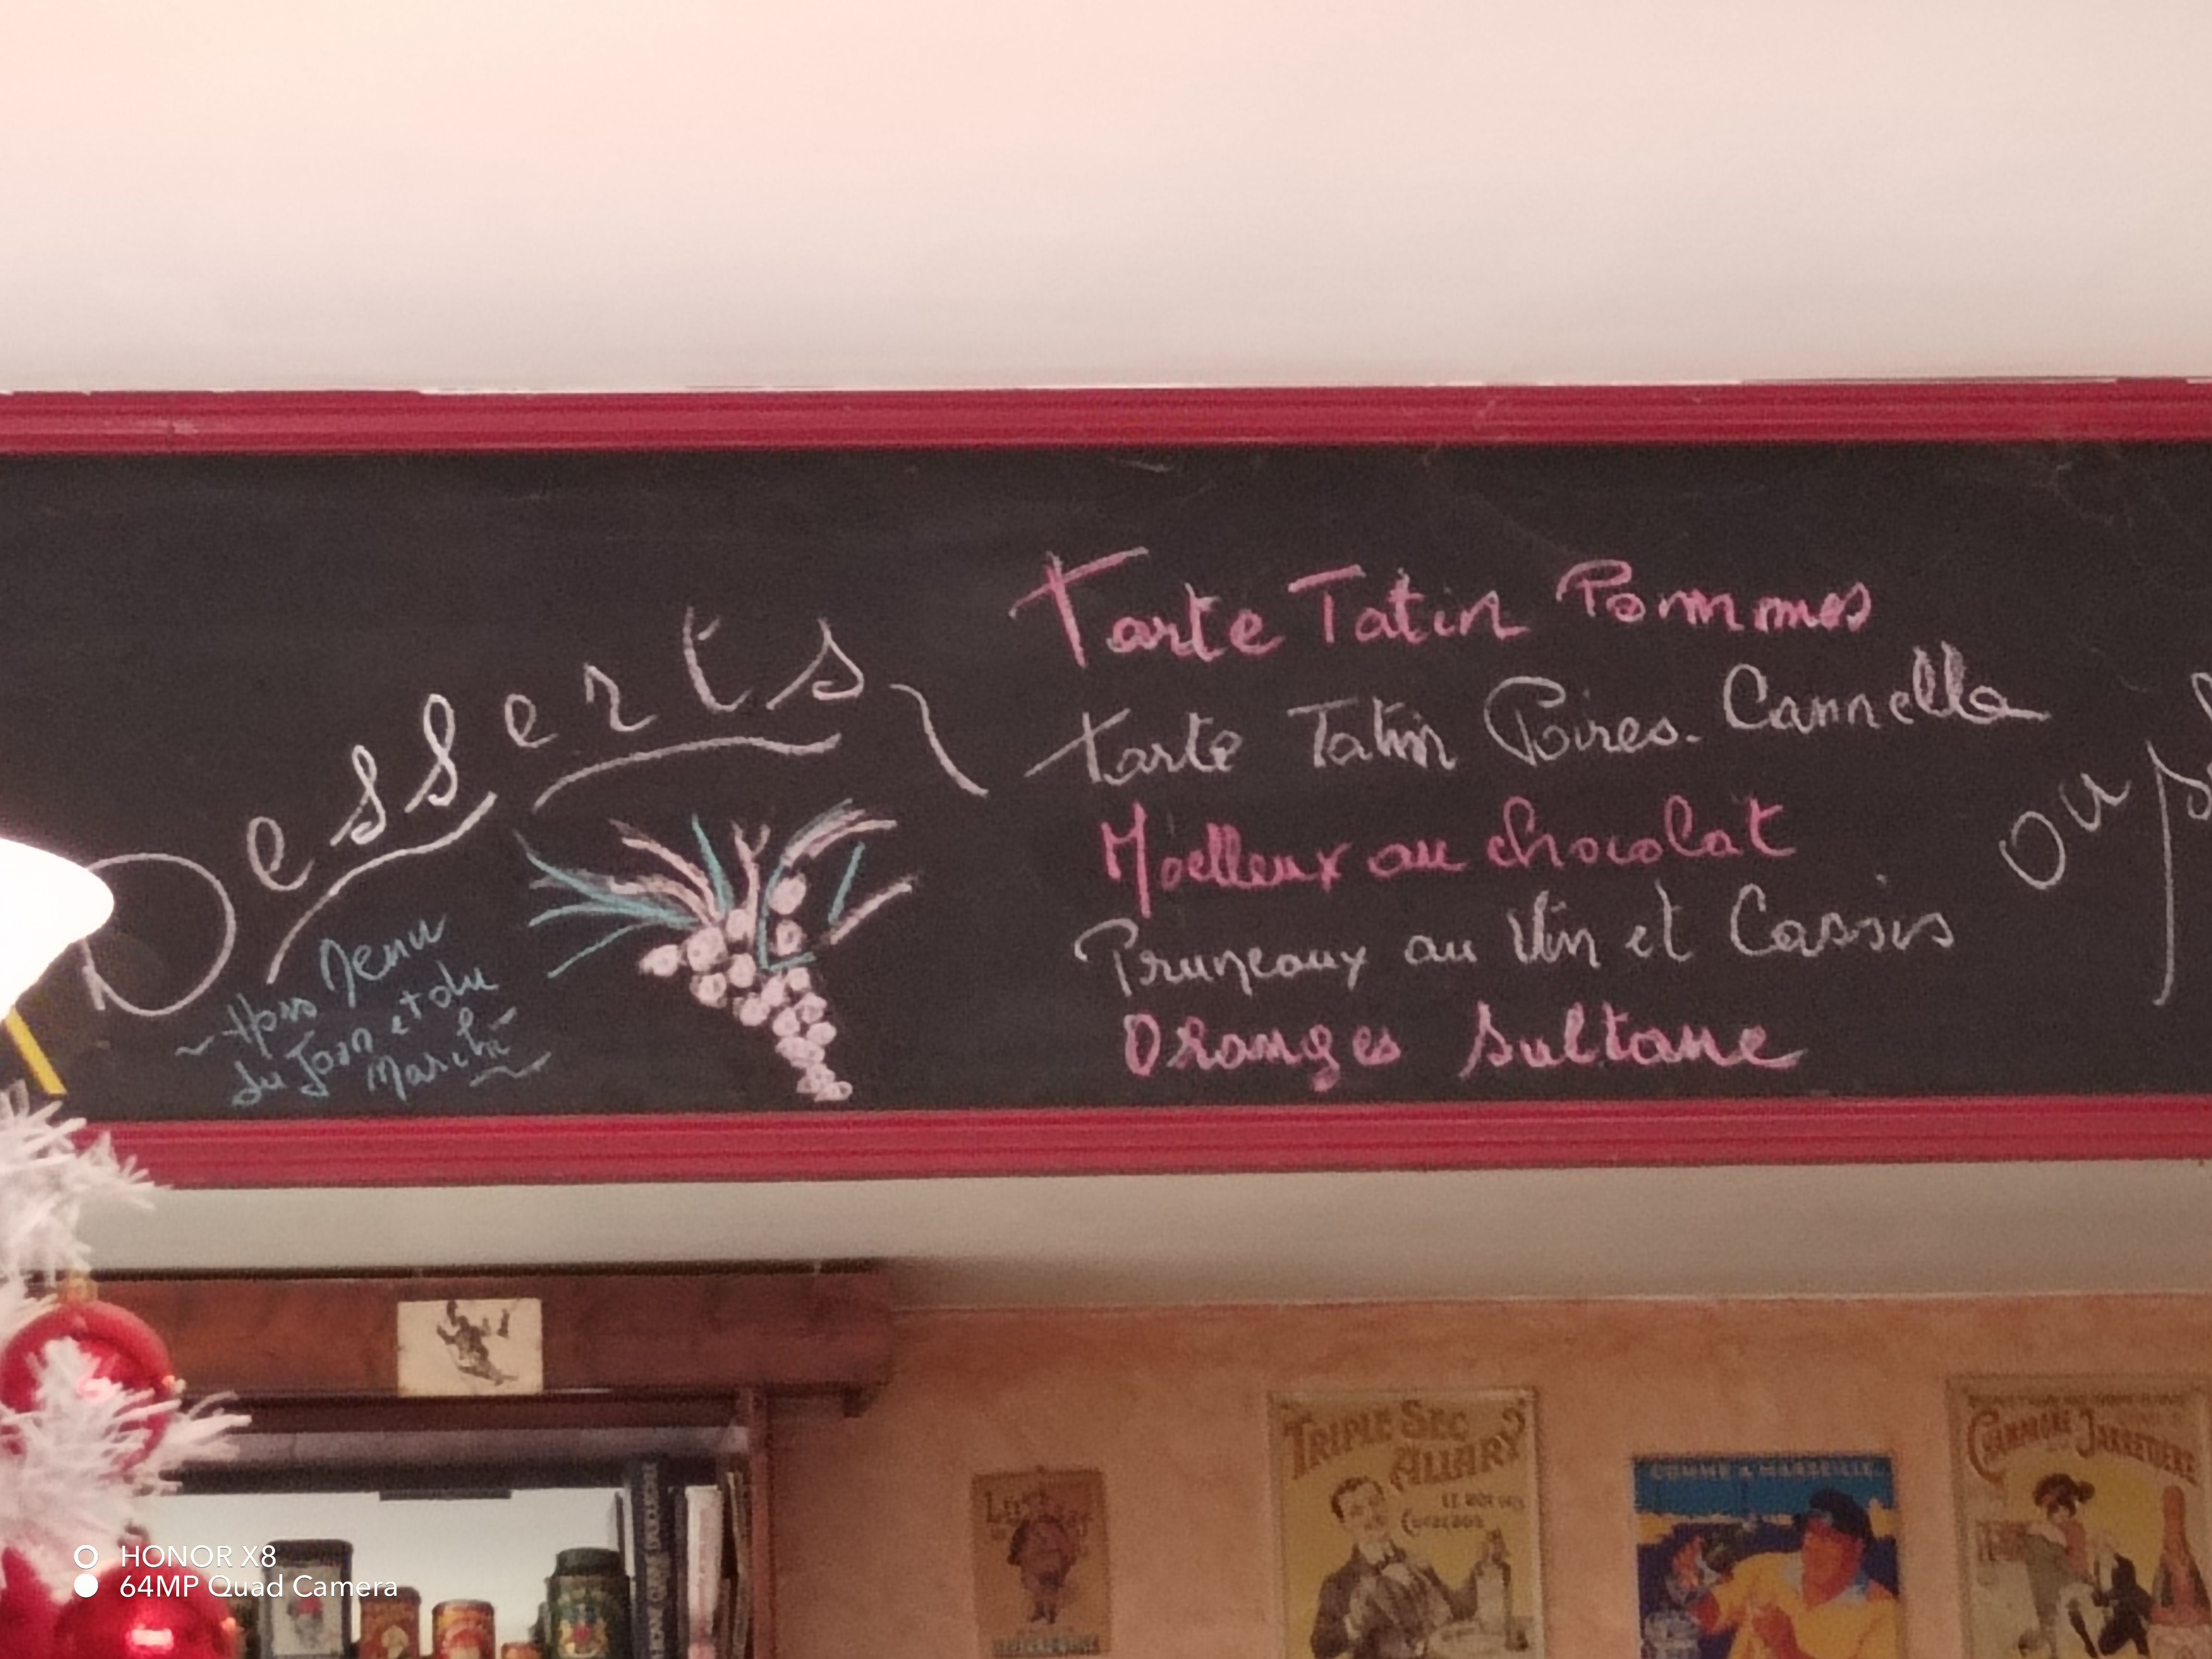 Desserts
~ Hors Menu
du Jour et du
Marché ~
Tarte Tatin Pommes
Tarte Tatin Poires-Cannelle
Moelleux au chocolat
Pruneaux au Vin et Cassis
Oranges Sultane
ou
TRIPLE SEC
ALLARY
CURACAOS
COMME A MARSEILLE
CHAMPAGNE
JARRETIERE
HONOR X8
64MP Quad Camera